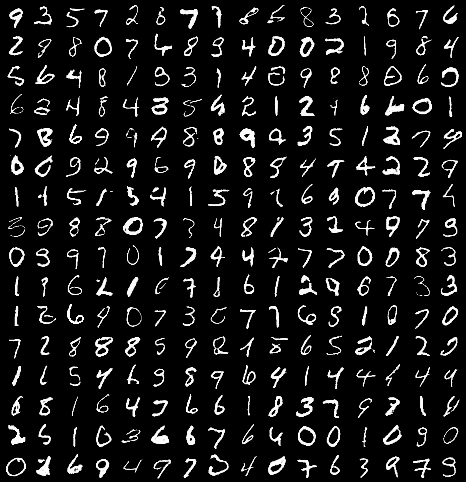 9 3 5 7 2 8 7 1 8 5 8 3 2 6 7 6
2 9 8 0 7 6 8 9 4 0 0 2 1 9 8 4
5 6 4 8 1 9 3 1 4 8 9 8 8 0 6 0
6 2 4 8 4 3 5 6 2 1 2 1 6 6 0 1
7 8 6 9 9 9 8 8 9 2 3 5 1 8 7 9
0 0 9 2 9 6 9 0 8 5 4 9 4 2 2 9
1 1 5 1 5 4 1 5 9 2 6 9 0 7 7 4
3 9 8 8 0 7 7 4 8 1 3 2 4 9 7 9
0 9 9 7 0 1 7 9 4 7 7 7 0 0 8 3
1 1 6 2 1 6 7 1 6 1 2 9 6 7 3 3
1 8 6 9 0 7 3 0 7 7 6 5 1 0 7 0
7 2 8 8 8 5 9 2 1 5 6 5 2 1 2 2
1 6 5 4 6 9 8 9 6 4 1 4 4 1 4 9
6 8 1 6 4 7 6 6 1 8 3 7 9 3 1 9
2 5 1 0 3 6 6 7 6 4 0 0 1 0 9 0
0 1 6 9 4 9 7 3 4 0 7 6 3 9 7 9